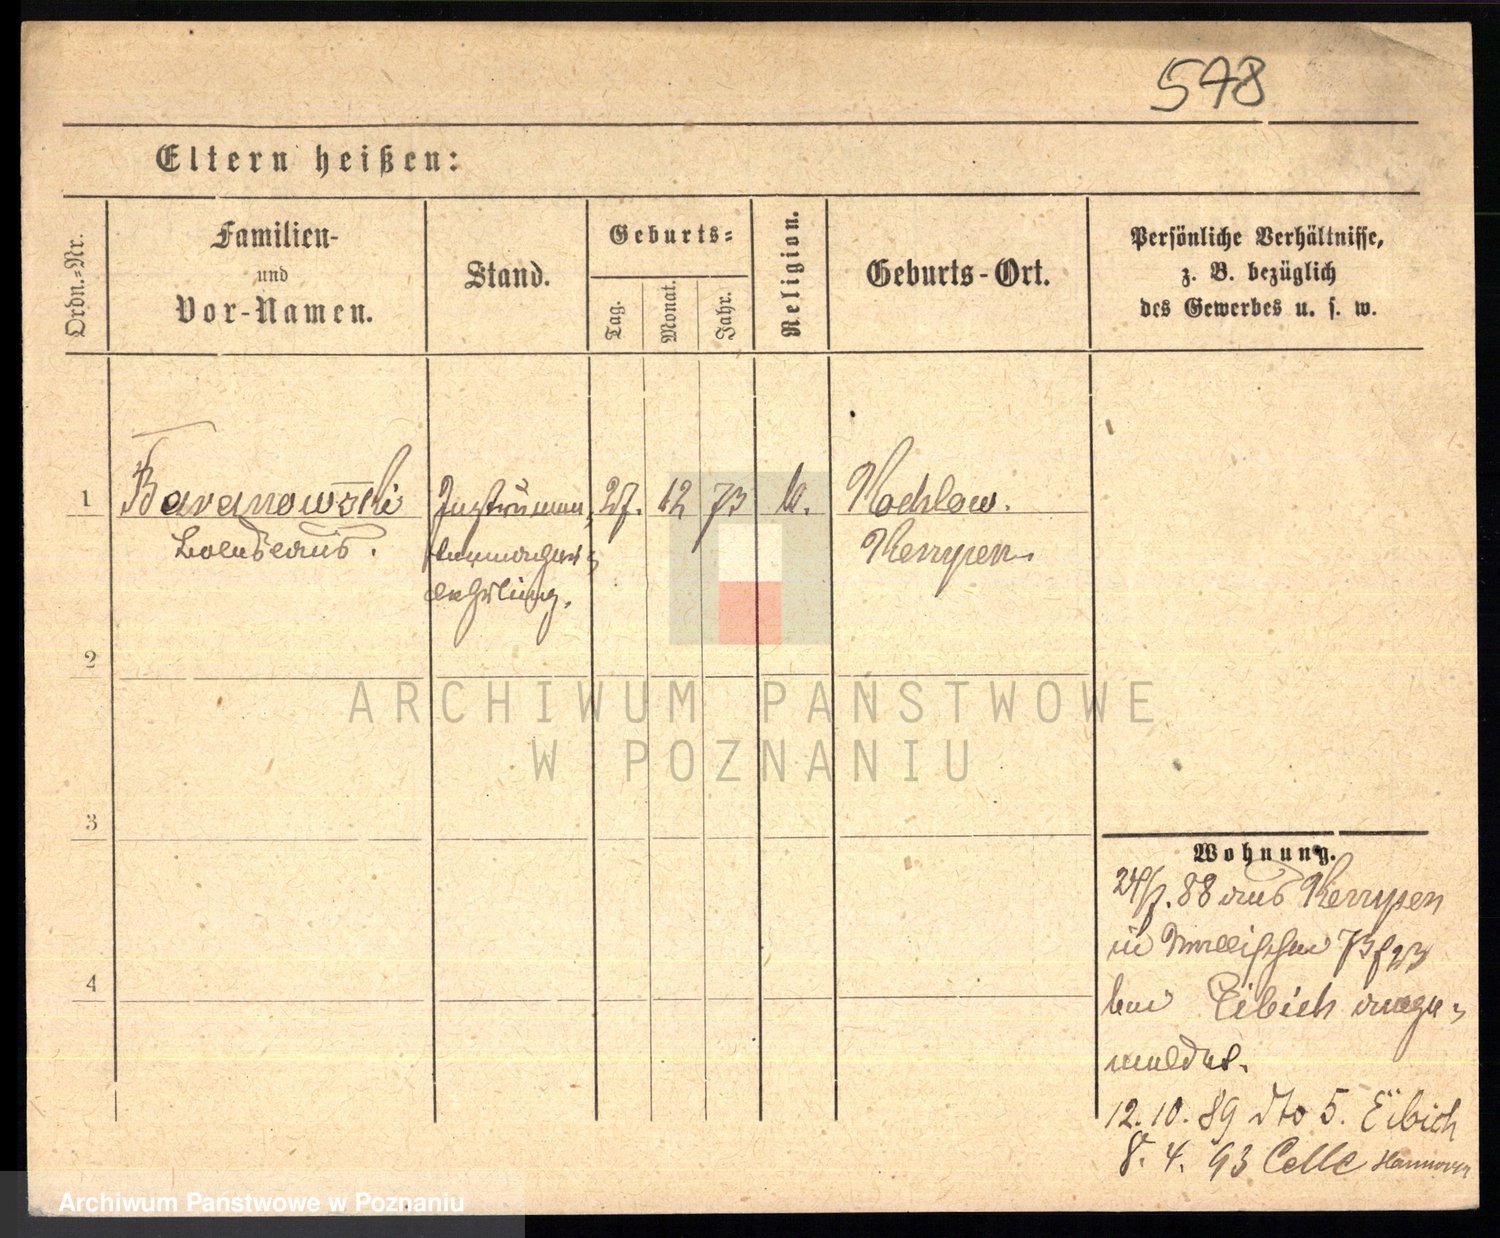 578
Eltern heißen:
Ordn.-Nr.
Familien-
und
Vor-Namen.
Stand.
Geburts-
Tag.
Monat.
Jahr.
Religion.
Geburts-Ort.
Persönliche Verhältnisse,
z. B. bezüglich
des Gewerbes u. s. w.
1
Baranowski
Boleslaus.
Instrumen-
tenmacher-
lehrling.
27. 12 73
k.
Kochlow.
Kempen
2
3
4
Wohnung.
24/7. 88 aus Kempen
in Wallischei 73
bei Eibich ange-
meldet.
12. 10. 89 dto 5. Eibich
8. 4. 93 Celle Hannover
ARCHIWUM PAŃSTWOWE
W POZNANIU
Archiwum Państwowe w Poznaniu